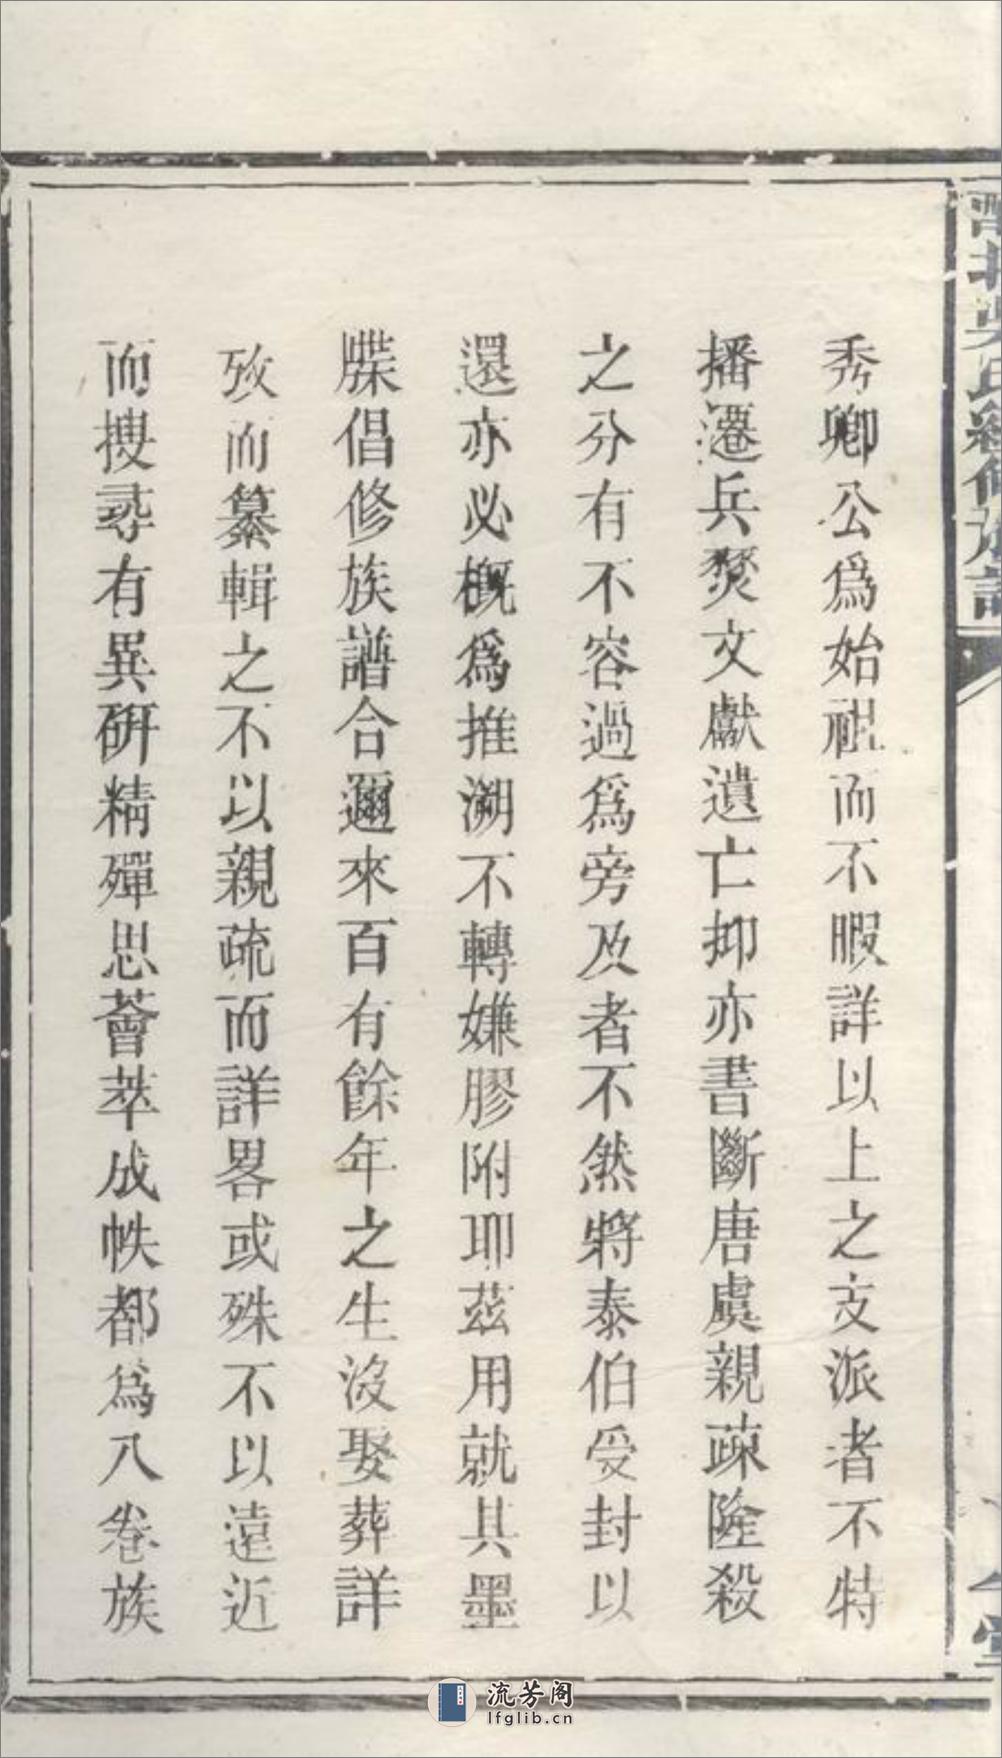 吳氏續修族譜
秀卿公爲始祖而不暇詳以上之支派者不特
播遷兵燹文獻遺亡抑亦書斷唐虞親疎隆殺
之分有不容過爲旁及者不然將泰伯受封以
還亦必概爲推溯不轉嫌膠附耶茲用就其墨
牒倡修族譜合邇來百有餘年之生沒娶葬詳
攷而纂輯之不以親疏而詳畧或殊不以遠近
而搜尋有異硏精殫思薈萃成帙都爲八卷族
流芳阁
lfglib.cn